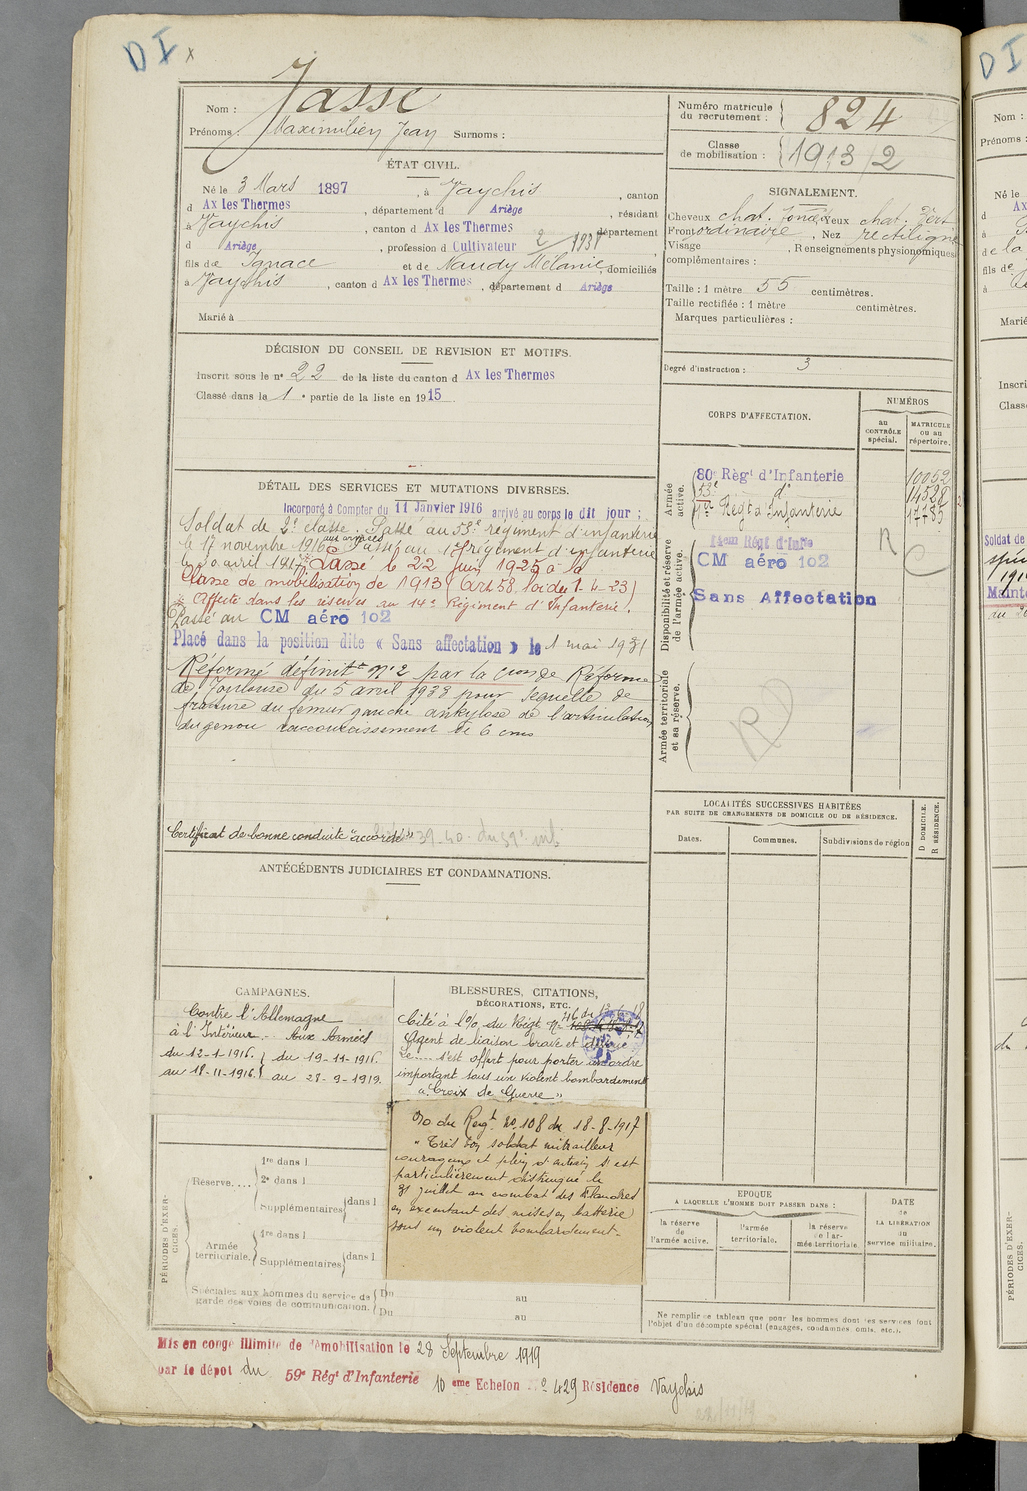 DI x
Nom : Jasse
Prénoms : Maximilien Jean Surnoms :
Numéro matricule du recrutement : 824
Classe de mobilisation : 1913/2
ÉTAT CIVIL.
Né le 3 Mars 1897, à Vaychis, canton
d Ax les Thermes, département d Ariège, résidant
à Vaychis, canton d Ax les Thermes, département
d Ariège, profession d Cultivateur
fils de Ignace et de Naudy Mélanie, domiciliés
à Vaychis, canton d Ax les Thermes, département d Ariège
Marié à
SIGNALEMENT.
Cheveux chat. foncé Yeux chat. vert
Front ordinaire, Nez rectiligne
Visage , Renseignements physionomiques
complémentaires :
Taille : 1 mètre 55 centimètres.
Taille rectifiée : 1 mètre centimètres.
Marques particulières :
Degré d'instruction : 3
DÉCISION DU CONSEIL DE REVISION ET MOTIFS.
Inscrit sous le n° 22 de la liste du canton d Ax les Thermes
Classé dans le 1 e partie de la liste en 1915
DÉTAIL DES SERVICES ET MUTATIONS DIVERSES.
Incorporé à Compter du 11 Janvier 1916 arrivé au corps le dit jour ;
Soldat de 2e classe. Passé au 53e régiment d'infanterie
le 17 novembre 1916 aux armées Passé au régiment d'infanterie
le 30 avril 1917 Classé le 22 juin 1925 à la
Classe de mobilisation de 1913 (art 58, loi du 1-4-23)
Affecté dans les réserves au 14e Régiment d'Infanterie.
Passé au CM aéro 102
Placé dans la position dite « Sans affectation » le 1 mai 1931
Réformé définitt n°2 par la Cion de Réforme
de Toulouse du 5 avril 1938 pour séquelle de
fracture du femur gauche ankylose de l'articulation
du genou raccourcissement de 6 cms
Certificat de bonne conduite "accordé"
CORPS D'AFFECTATION.
NUMÉROS
au CONTRÔLE spécial.
MATRICULE ou au répertoire.
Armée active.
80e Régt d'Infanterie 10052
53e d° 14528
Régt d'Infanterie 17785
Disponibilité et réserve de l'armée active.
14eme Régt d'Infie
CM aéro 102
Sans Affectation
R
Armée territoriale et sa réserve.
LOCALITÉS SUCCESSIVES HABITÉES
PAR SUITE DE CHANGEMENTS DE DOMICILE OU DE RÉSIDENCE.
Dates. Communes. Subdivisions de région
D DOMICILE.
R RÉSIDENCE.
ANTÉCÉDENTS JUDICIAIRES ET CONDAMNATIONS.
CAMPAGNES.
Contre l'Allemagne
à l'Intérieur. - Aux Armées
du 12-1-1916. du 19-11-1916.
au 18-11-1916. au 28-9-1919.
BLESSURES, CITATIONS,
DÉCORATIONS, ETC.
Cité à l'O/ du Régt N°
Agent de liaison brave et dévoué
s'est offert pour porter un ordre
important sous un violent bombardement
"Croix de Guerre"
O/o du Regt no 108 du 18-8-1917
"Très bon soldat mitrailleur
courageux et plein d'entrain s'est
particulièrement distingué le
31 juillet au combat des Flandres
en executant des mises en batterie
sous un violent bombardement.
PÉRIODES D'EXERCICES.
Réserve....
1re dans l
2e dans l
Supplémentaires dans l
Armée territoriale.
1re dans l
Supplémentaires dans l
Spéciales aux hommes du service de garde des voies de communication.
Du au
Du au
EPOQUE
A LAQUELLE L'HOMME DOIT PASSER DANS :
la réserve de l'armée active.
l'armée territoriale.
la réserve de l'armée territoriale
DATE de LA LIBÉRATION du service militaire.
Ne remplir ce tableau que pour les hommes dont les services font
l'objet d'un décompte spécial (engagés, condamnés, omis, etc.).
Mis en congé Illimité de démobilisation le 28 Septembre 1919
par le dépot du 59e Régt d'Infanterie 10 eme Echelon N° 429 Résidence Vaychis